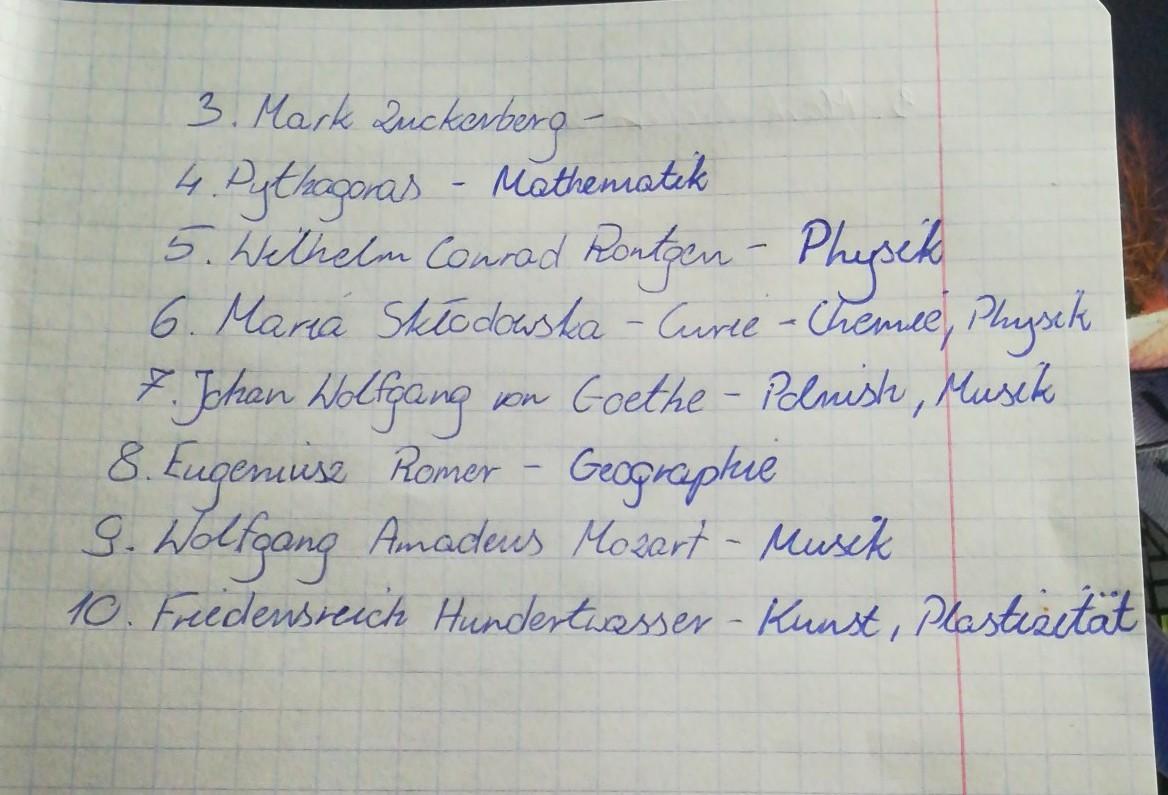 3. Mark Zuckerberg -
4. Pythagoras - Mathematik
5. Wilhelm Conrad Rontgen - Physik
6. Maria Skłodowska - Curie - Chemie, Physik
7. Johan Wolfgang von Goethe - Polnish, Musik
8. Eugeniusz Romer - Geographie
9. Wolfgang Amadeus Mozart - Musik
10. Friedensreich Hundertwasser - Kunst, Plastizität